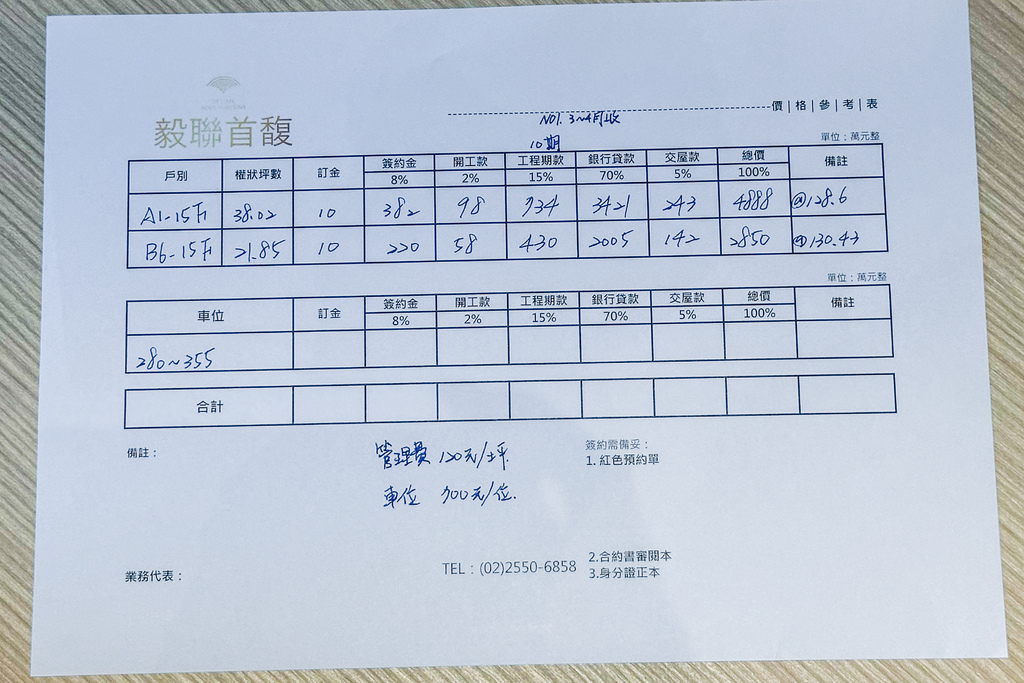 價｜格｜參｜考｜表
NO1. 3~4月收
10期
毅聯首馥
單位：萬元整
戶別 權狀坪數 訂金 簽約金 開工款 工程期款 銀行貸款 交屋款 總價 備註
8% 2% 15% 70% 5% 100%
A1-15F 38.02 10 382 98 734 3421 243 4888 @128.6
B6-15F 21.85 10 220 58 430 2005 142 2850 @130.43
單位：萬元整
車位 訂金 簽約金 開工款 工程期款 銀行貸款 交屋款 總價 備註
8% 2% 15% 70% 5% 100%
280~355
合計
備註：
管理費 120元/坪
車位 700元/位.
簽約需備妥：
1. 紅色預約單
2.合約書審閱本
3.身分證正本
業務代表：
TEL：(02)2550-6858